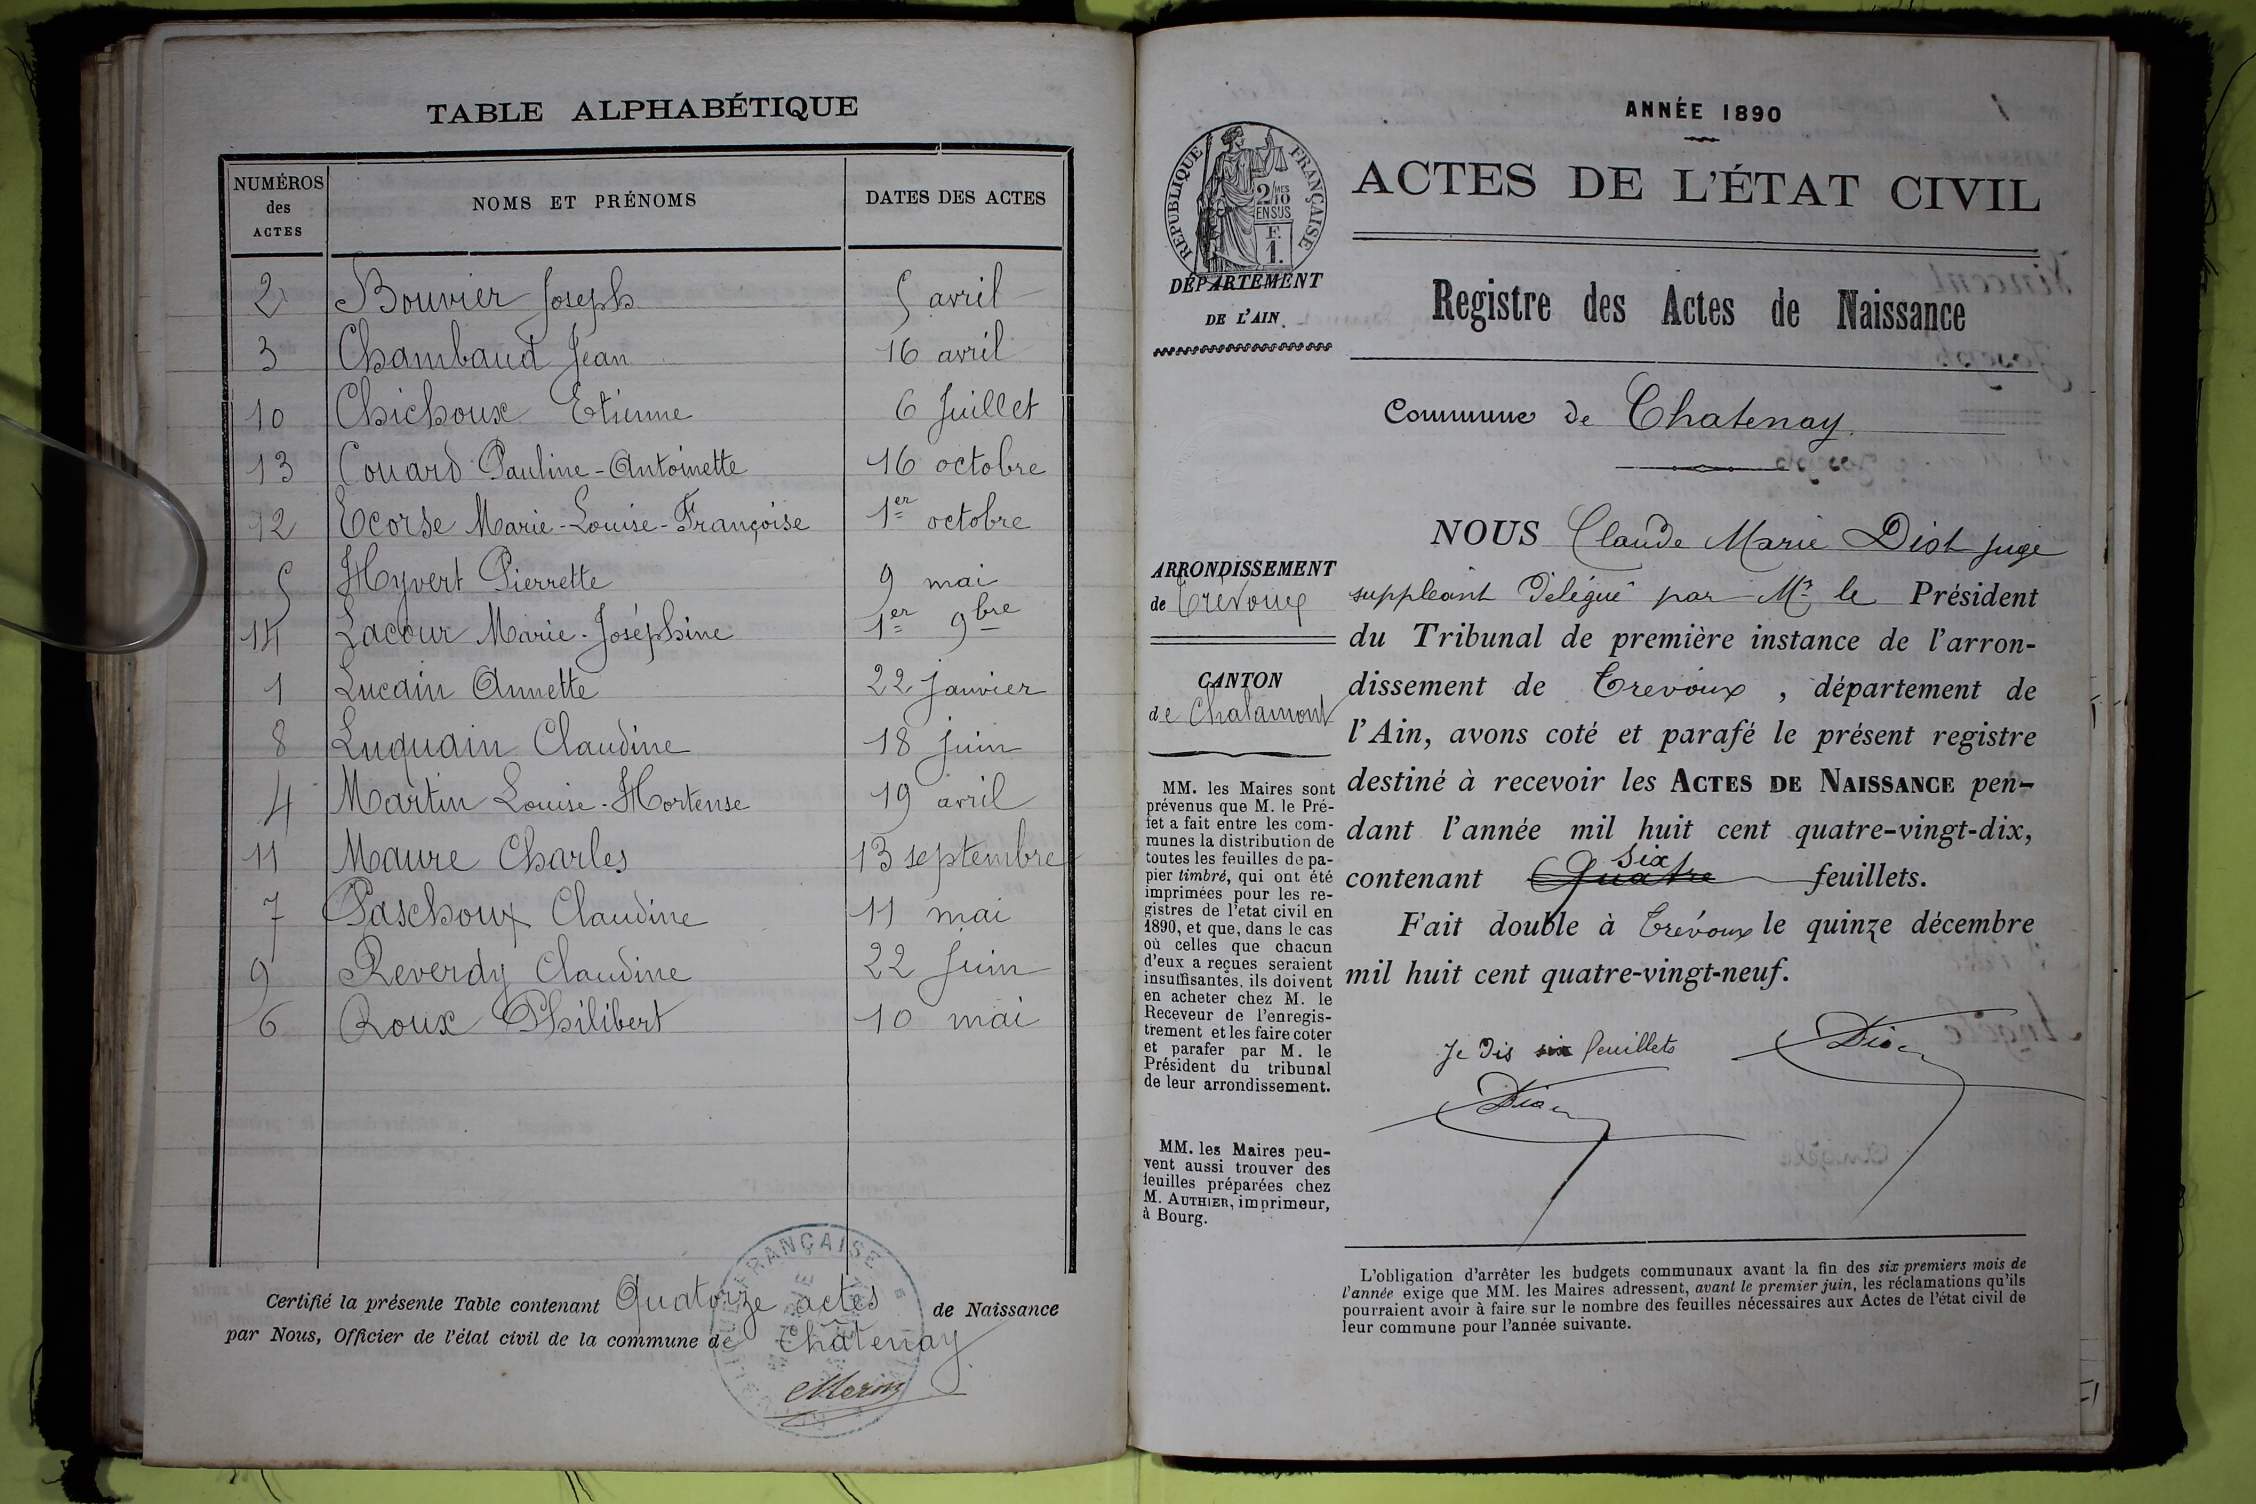 TABLE ALPHABÉTIQUE
NUMÉROS des ACTES NOMS ET PRÉNOMS DATES DES ACTES
2 Bouvier Joseph 5 avril
3 Chambaud Jean 16 avril
10 Chichoux Etienne 6 Juillet
13 Couard Pauline-Antoinette 16 octobre
12 Ecorse Marie-Louise-Françoise 1er octobre
5 Hyvert Pierrette 9 mai
14 Lacour Marie-Joséphine 1er 9bre
1 Lucain Annette 22 janvier
8 Luquain Claudine 18 juin
4 Martin Louise-Hortense 19 avril
11 Maure Charles 13 septembre
7 Paschoux Claudine 11 mai
9 Reverdy Claudine 22 Juin
6 Roux Philibert 10 mai
Certifié la présente Table contenant Quatorze actes de Naissance
par Nous, Officier de l'état civil de la commune de Châtenay
ANNÉE 1890
ACTES DE L'ÉTAT CIVIL
RÉPUBLIQUE FRANÇAISE
2/10 MES
EN SUS
F.
1.
DÉPARTEMENT
DE L'AIN.
Registre des Actes de Naissance
Commune de Chatenay.
ARRONDISSEMENT
de Trévoux
CANTON
de Chalamont
MM. les Maires sont
prévenus que M. le Pré-
fet a fait entre les com-
munes la distribution de
toutes les feuilles de pa-
pier timbré, qui ont été
imprimées pour les re-
gistres de l'etat civil en
1890, et que, dans le cas
où celles que chacun
d'eux a reçues seraient
insuffisantes, ils doivent
en acheter chez M. le
Receveur de l'enregis-
trement et les faire coter
et parafer par M. le
Président du tribunal
de leur arrondissement.
MM. les Maires peu-
vent aussi trouver des
feuilles préparées chez
M. AUTHIER, imprimeur,
à Bourg.
NOUS Claude Marie Diot juge
suppléant délégué par Mr le Président
du Tribunal de première instance de l'arron-
dissement de Trevoux, département de
l'Ain, avons coté et parafé le présent registre
destiné à recevoir les ACTES DE NAISSANCE pen-
dant l'année mil huit cent quatre-vingt-dix,
contenant Quatre six feuillets.
Fait double à Trévoux le quinze décembre
mil huit cent quatre-vingt-neuf.
Je dis six feuillets
L'obligation d'arrêter les budgets communaux avant la fin des six premiers mois de
l'année exige que MM. les Maires adressent, avant le premier juin, les réclamations qu'ils
pourraient avoir à faire sur le nombre des feuilles nécessaires aux Actes de l'état civil de
leur commune pour l'année suivante.